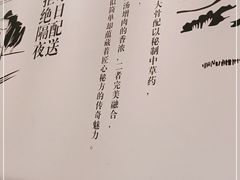 大骨配以秘制中草药，
汤增肉的香浓，二者完美融合，
似简单却蕴藏着匠心秘方的传奇魅力。
日配送
拒绝隔夜